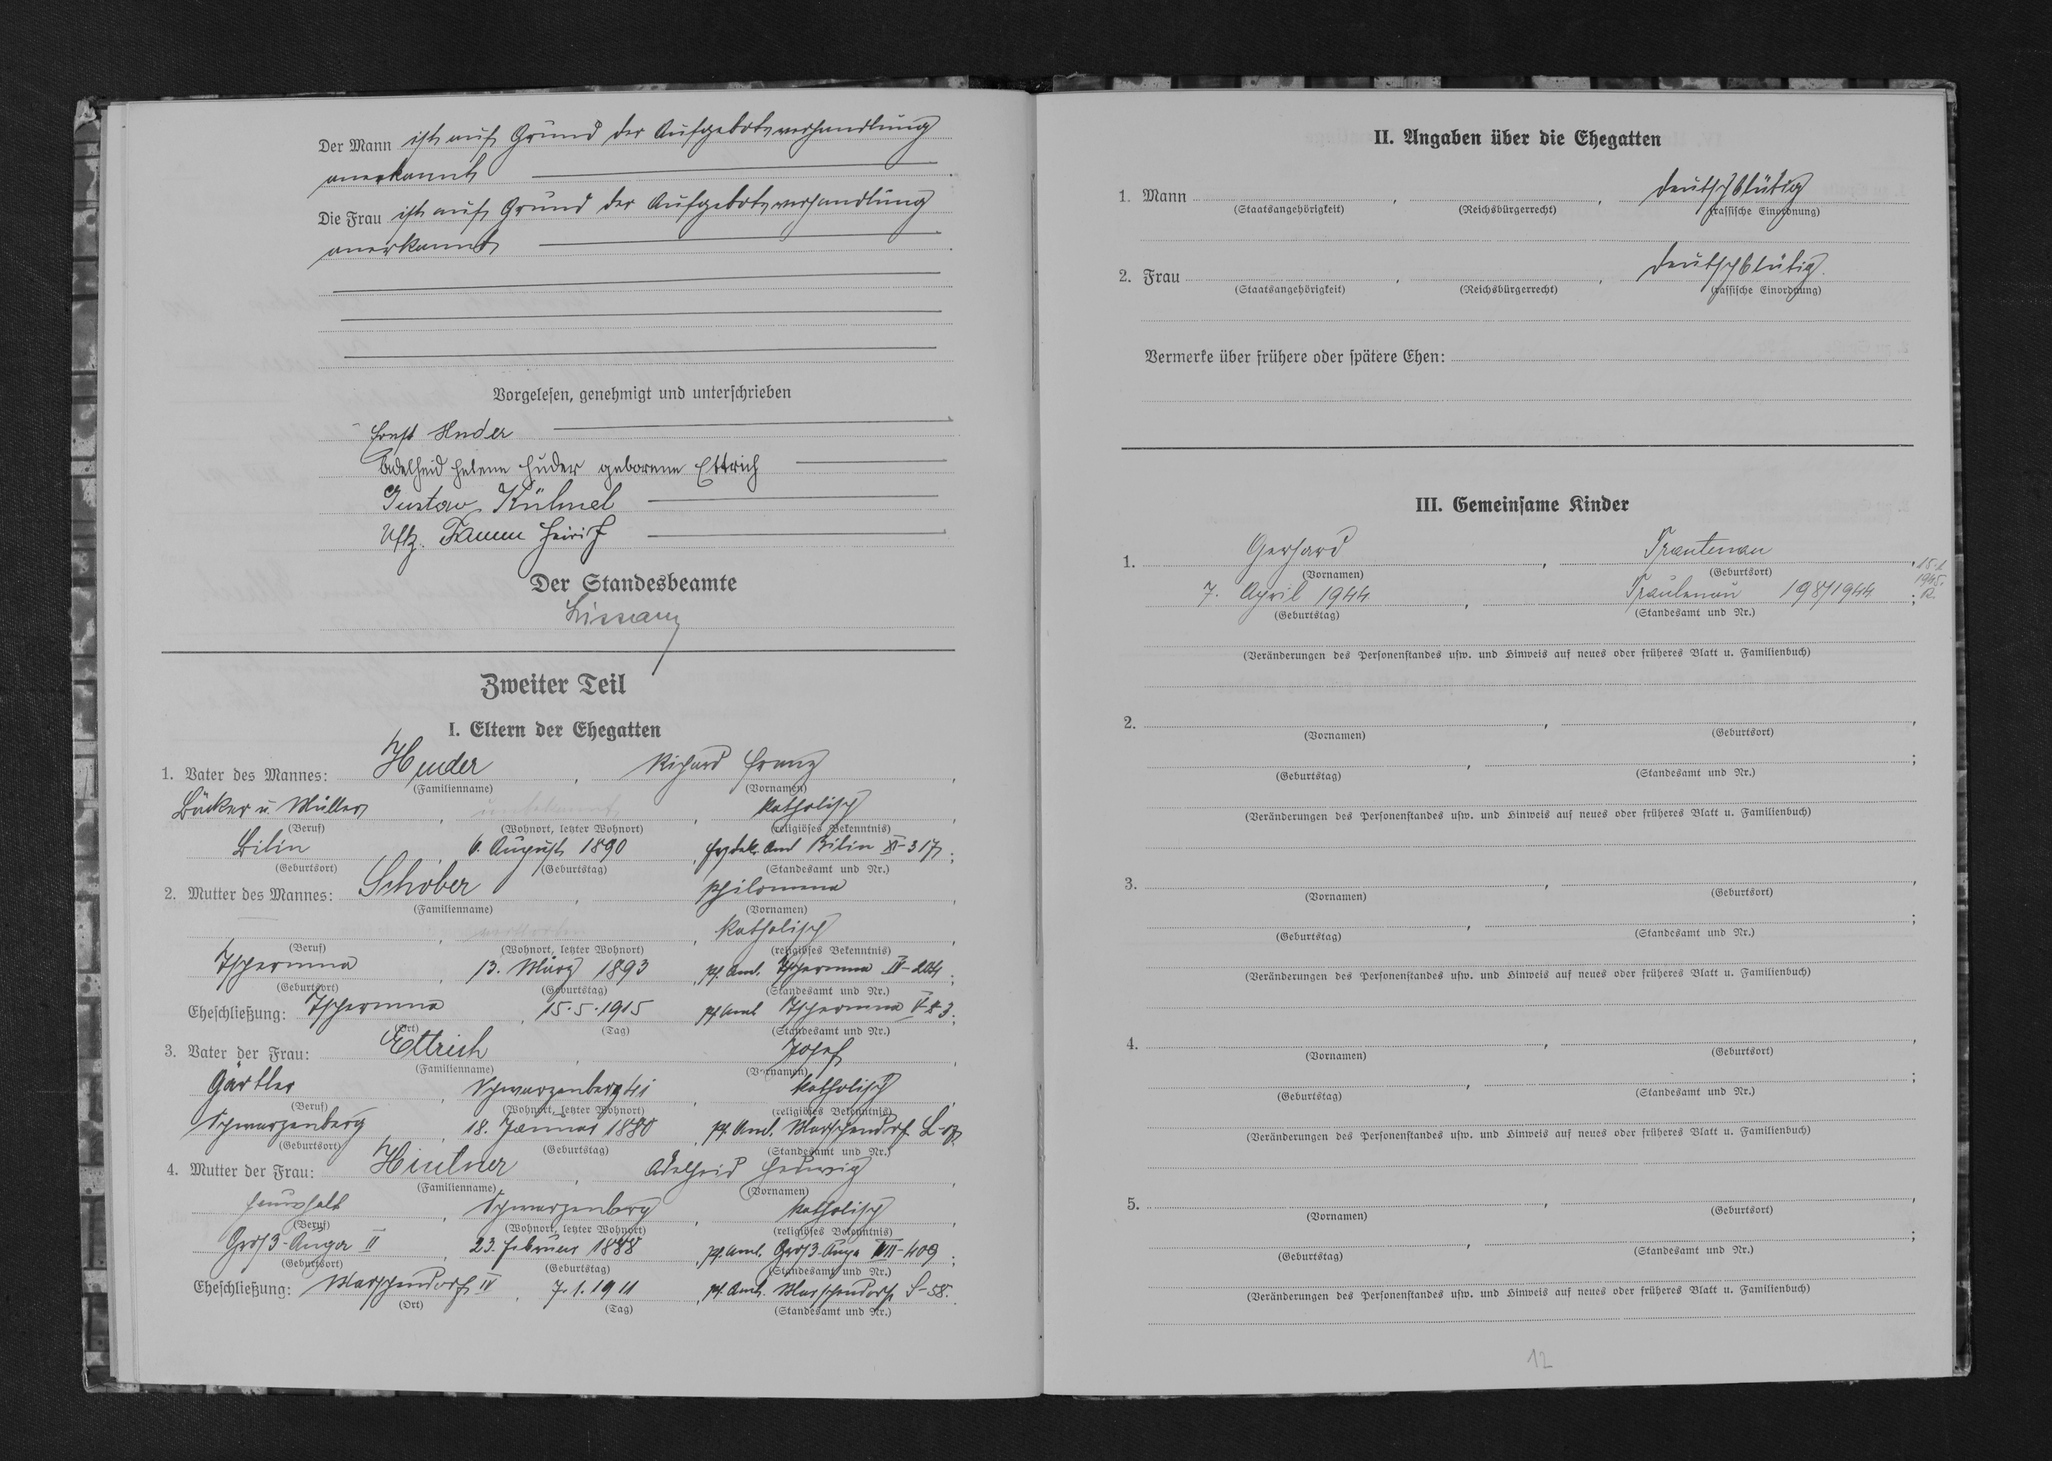 Der Mann ist auf Grund der Aufgebotsverhandlung
anerkannt
Die Frau ist auf Grund der Aufgebotsverhandlung
anerkannt
Vorgelesen, genehmigt und unterschrieben
Ernst Huder
Adelheid Helene Huder geborene Ettrich
Gustav Kühnel
Uffz.
Der Standesbeamte
Zweiter Teil
I. Eltern der Ehegatten
1. Vater des Mannes: Huder, Richard Franz,
(Familienname) (Vornamen)
Bäcker u. Müller, unbekannt, katholisch,
(Beruf) (Wohnort, letzter Wohnort) (religiöses Bekenntnis)
Bilin, 6. August 1890, Amt Bilin XI-317;
(Geburtsort) (Geburtstag) (Standesamt und Nr.)
2. Mutter des Mannes: Schober, Philomena,
(Familienname) (Vornamen)
verstorben, katholisch,
(Beruf) (Wohnort, letzter Wohnort) (religiöses Bekenntnis)
Tschermna, 13. März 1893, Pf. Amt. Tschermna IV-204;
(Geburtsort) (Geburtstag) (Standesamt und Nr.)
Eheschließung: Tschermna, 15.5.1915, Pf. Amt Tschermna
(Ort) (Tag) (Standesamt und Nr.)
3. Vater der Frau: Ettrich, Josef,
(Familienname) (Vornamen)
Gärtler, Schwarzenberg 41, katholisch,
(Beruf) (Wohnort, letzter Wohnort) (religiöses Bekenntnis)
Schwarzenberg, 18. Jänner 1880, Pf. Amt. Marschendorf
(Geburtsort) (Geburtstag) (Standesamt und Nr.)
4. Mutter der Frau: Hintner, Adelheid Hedwig,
(Familienname) (Vornamen)
Haushalt, Schwarzenberg, katholisch,
(Beruf) (Wohnort, letzter Wohnort) (religiöses Bekenntnis)
Groß-Aupa II, 23. Februar 1888, Pf. Amt. Groß-Aupa VII-409;
(Geburtsort) (Geburtstag) (Standesamt und Nr.)
Eheschließung: Marschendorf IV, 7.1.1911, Pf. Amt. Marschendorf S-58.
(Ort) (Tag) (Standesamt und Nr.)
II. Angaben über die Ehegatten
1. Mann, , deutschblütig
(Staatsangehörigkeit) (Reichsbürgerrecht) (rassische Einordnung)
2. Frau, , deutschblütig.
(Staatsangehörigkeit) (Reichsbürgerrecht) (rassische Einordnung)
Vermerke über frühere oder spätere Ehen:
III. Gemeinsame Kinder
1. Gerhard, Trautenau, 15.1.
(Vornamen) (Geburtsort) 1945.
7. April 1944, Trautenau 198/1944;
(Geburtstag) (Standesamt und Nr.)
(Veränderungen des Personenstandes usw. und Hinweis auf neues oder früheres Blatt u. Familienbuch)
2. , ,
(Vornamen) (Geburtsort)
, ;
(Geburtstag) (Standesamt und Nr.)
(Veränderungen des Personenstandes usw. und Hinweis auf neues oder früheres Blatt u. Familienbuch)
3. , ,
(Vornamen) (Geburtsort)
, ;
(Geburtstag) (Standesamt und Nr.)
(Veränderungen des Personenstandes usw. und Hinweis auf neues oder früheres Blatt u. Familienbuch)
4. , ,
(Vornamen) (Geburtsort)
, ;
(Geburtstag) (Standesamt und Nr.)
(Veränderungen des Personenstandes usw. und Hinweis auf neues oder früheres Blatt u. Familienbuch)
5. , ,
(Vornamen) (Geburtsort)
, ;
(Geburtstag) (Standesamt und Nr.)
(Veränderungen des Personenstandes usw. und Hinweis auf neues oder früheres Blatt u. Familienbuch)
12